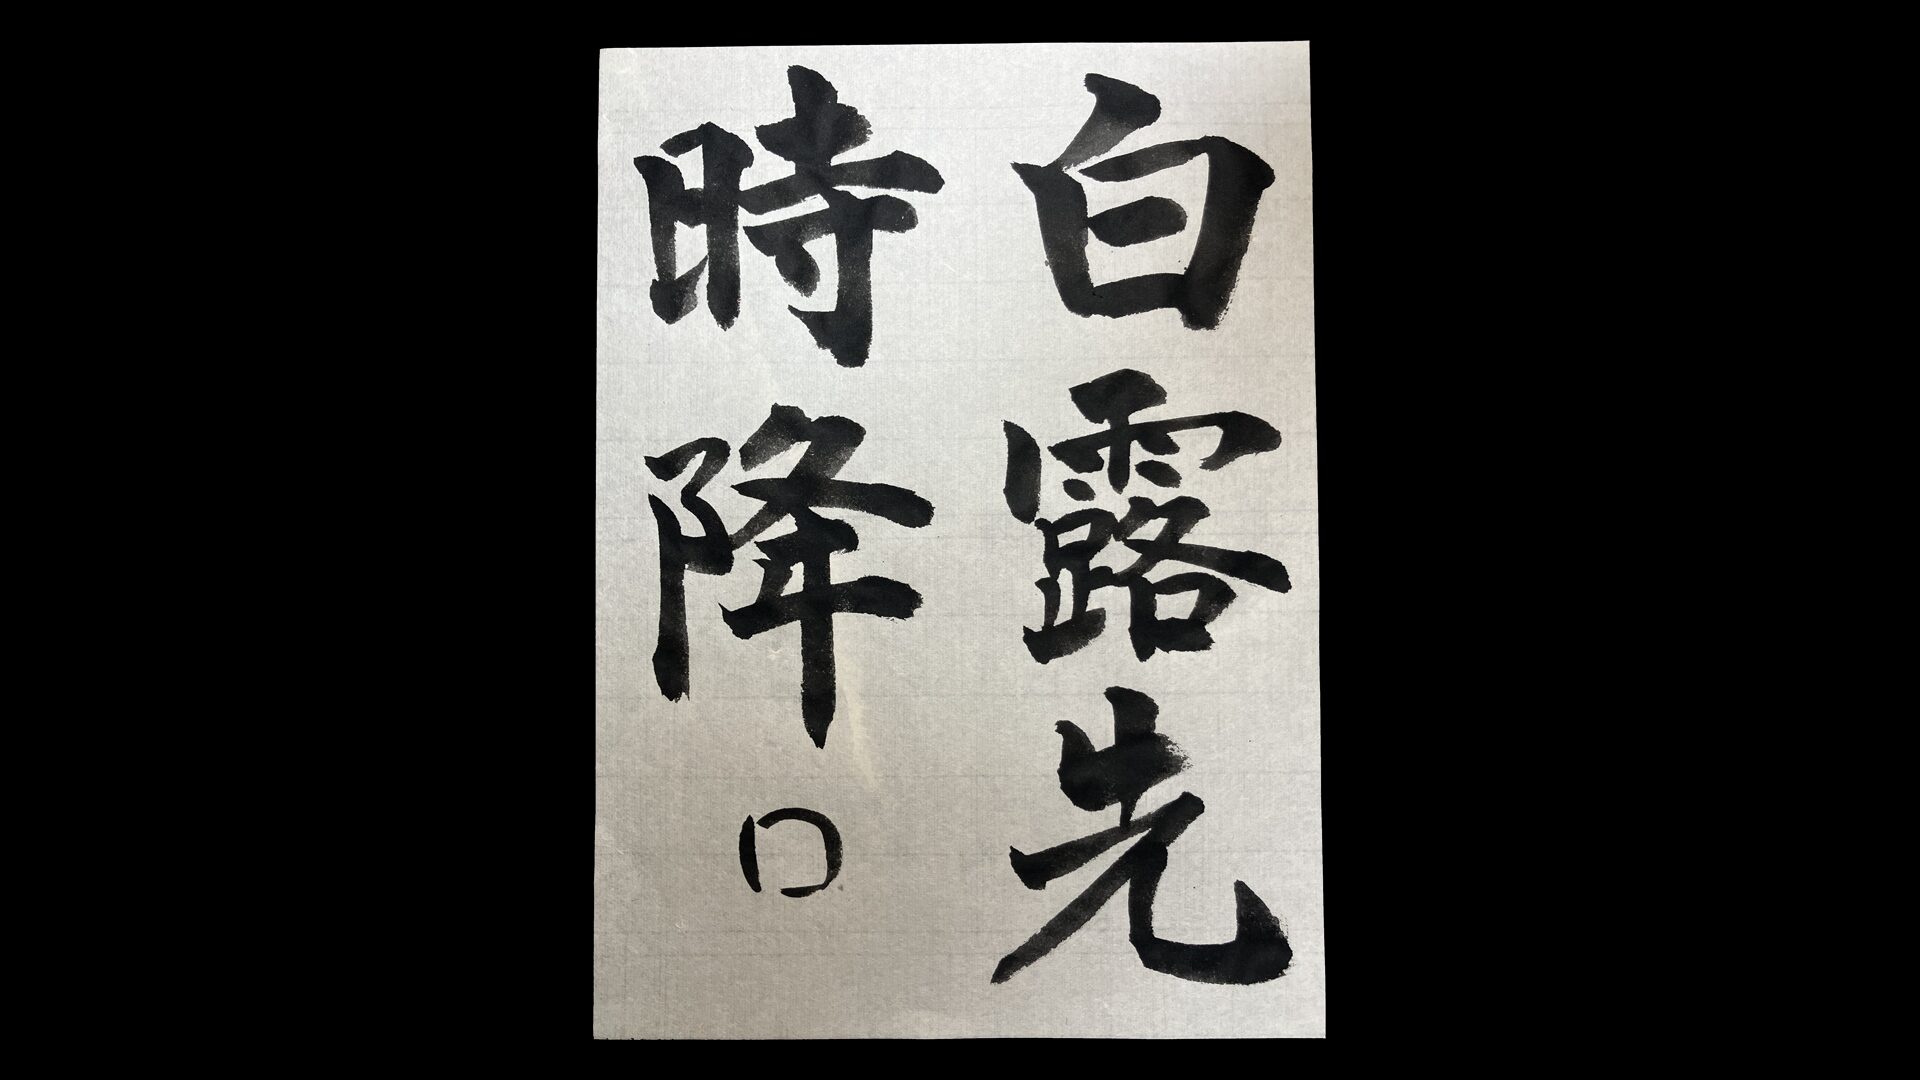 白露先
時降口